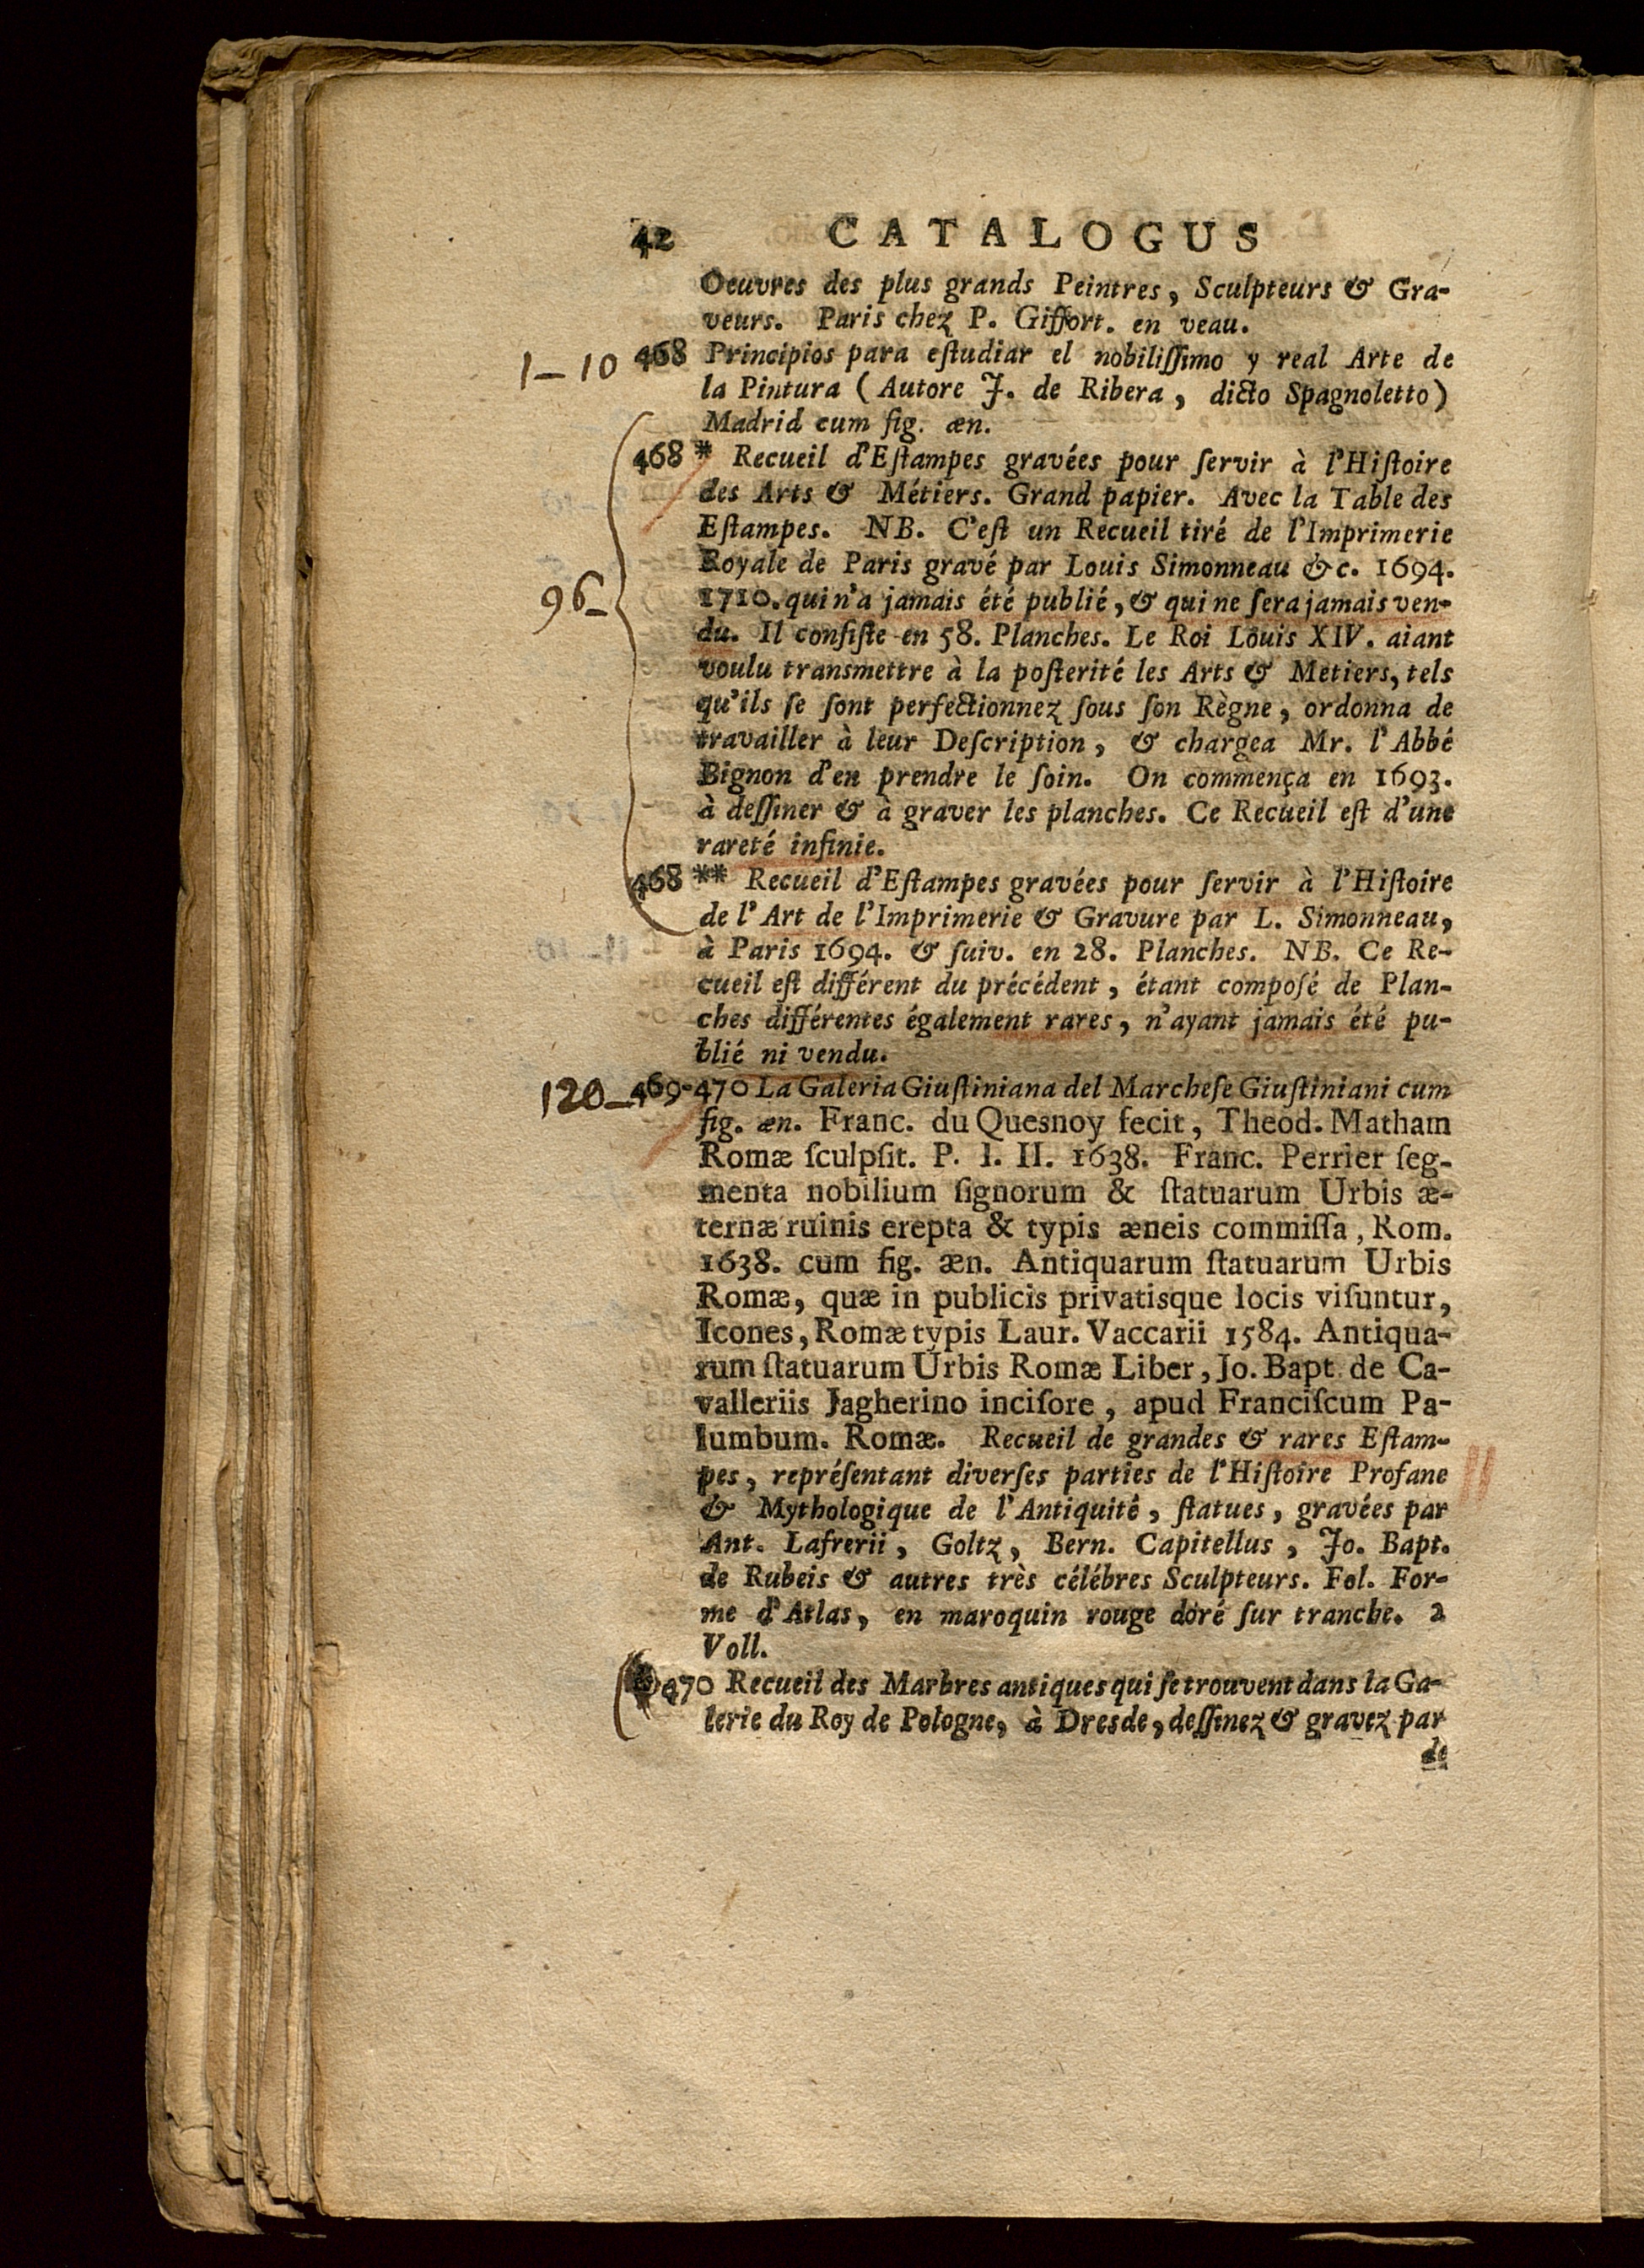 42 CATALOGUS
Oeuvres des plus grands Peintres, Sculpteurs & Gra-
veurs. Paris chez P. Giffort. en veau.
1-10 468 Principios para eſtudiar el nobiliſſimo y real Arte de
la Pintura (Autore J. de Ribera, dicto Spagnoletto)
Madrid cum fig. æn.
468 * Recueil d'Eſtampes gravées pour ſervir à l'Hiſtoire
des Arts & Métiers. Grand papier. Avec la Table des
Eſtampes. NB. C'eſt un Recueil tiré de l'Imprimerie
Royale de Paris gravé par Louis Simonneau &c. 1694.
96- 1710. qui n'a jamais été publié, & qui ne ſera jamais ven-
du. Il conſiſte en 58. Planches. Le Roi Louis XIV. aiant
voulu transmettre à la poſterité les Arts & Metiers, tels
qu'ils ſe ſont perfectionnez ſous ſon Règne, ordonna de
travailler à leur Deſcription, & chargea Mr. l'Abbé
Bignon d'en prendre le ſoin. On commença en 1693.
à deſſiner & à graver les planches. Ce Recueil eſt d'une
rareté infinie.
468 ** Recueil d'Eſtampes gravées pour ſervir à l'Hiſtoire
de l'Art de l'Imprimerie & Gravure par L. Simonneau,
à Paris 1694. & ſuiv. en 28. Planches. NB. Ce Re-
cueil eſt différent du précédent, étant compoſé de Plan-
ches différentes également rares, n'ayant jamais été pu-
blié ni vendu.
120- 469-470 La Galeria Giuſtiniana del Marcheſe Giuſtiniani cum
fig. æn. Franc. du Quesnoy fecit, Theod. Matham
Romæ ſculpſit. P. I. II. 1638. Franc. Perrier ſeg-
menta nobilium ſignorum & ſtatuarum Urbis æ-
ternæ ruinis erepta & typis æneis commiſſa, Rom.
1638. cum fig. æn. Antiquarum ſtatuarum Urbis
Romæ, quæ in publicis privatisque locis viſuntur,
Icones, Romæ typis Laur. Vaccarii 1584. Antiqua-
rum ſtatuarum Urbis Romæ Liber, Jo. Bapt. de Ca-
valleriis Jagherino inciſore, apud Franciſcum Pa-
lumbum. Romæ. Recueil de grandes & rares Eſtam-
pes, repréſentant diverſes parties de l'Hiſtoire Profane
& Mythologique de l'Antiquité, ſtatues, gravées par
Ant. Lafrerii, Goltz, Bern. Capitellus, Jo. Bapt.
de Rubeis & autres très célébres Sculpteurs. Fol. For-
me d'Atlas, en maroquin rouge doré ſur tranche. 2
Voll.
470 Recueil des Marbres antiques qui ſe trouvent dans la Ga-
lerie du Roy de Pologne, à Dresde, deſſinez & gravez par
de